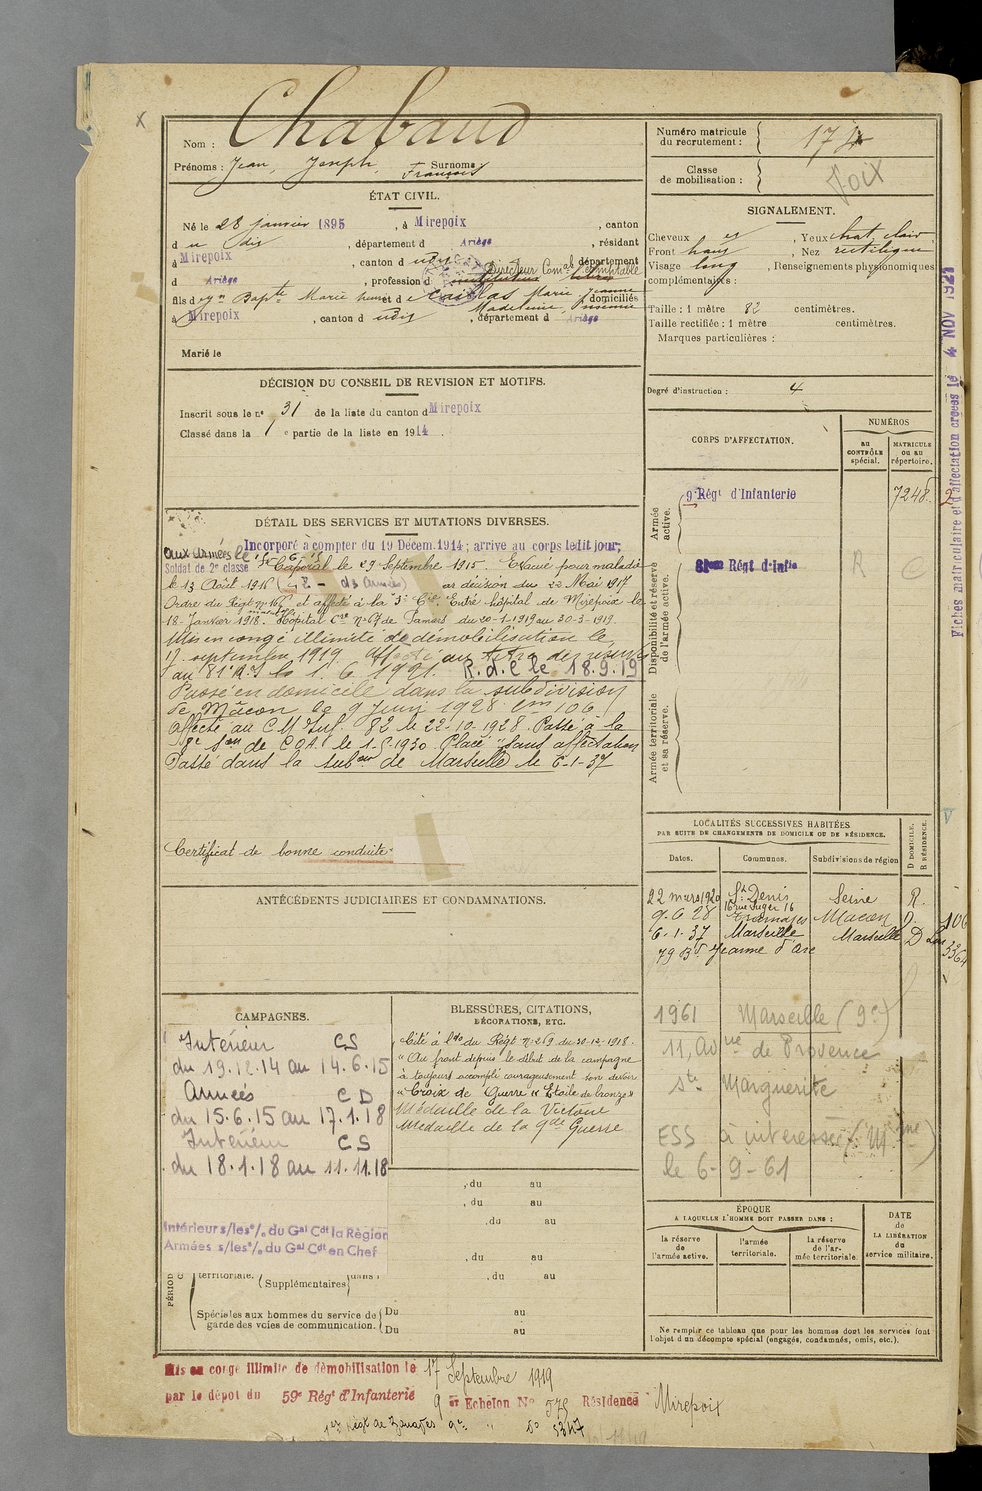 Nom : Chabaud
Prénoms : Jean, Joseph, François Surnoms
ÉTAT CIVIL.
Né le 28 janvier 1895, à Mirepoix, canton
d u dis, département d Ariège, résidant
à Mirepoix, canton d udis, département
Directeur Com al Comptable
d Ariège, profession d
fils d Jn Bapte Marie et d Marie Jeanne
Madeleine domiciliés
à Mirepoix, canton d udis, département d Ariège
Marié le
DÉCISION DU CONSEIL DE REVISION ET MOTIFS.
Inscrit sous le n° 31 de la liste du canton d Mirepoix
Classé dans la 1 e partie de la liste en 1914.
DÉTAIL DES SERVICES ET MUTATIONS DIVERSES.
Incorporé à compter du 19 Décem. 1914; arrive au corps ledit jour;
aux armées le 15 6 15
Soldat de 2e classe Caporal le 29 Septembre 1915. Evacué pour maladie
le 13 Août 1916 par décision du 22 Mai 1917
Ordre du Régt n° 165 et affecté à la 3e Cie. Entré hôpital de Mirepoix le
18 Janvier 1918. Hôpital Cre N° 67 de Pamiers du 20-1-1919 au 30-3-1919.
Mis en congé illimité de démobilisation le
17 septembre 1919. Affecté au
au 81e R.I le 1. 6 1921. R.d.C le 18.9.19
Passé en domicile dans la subdivision
de Mâcon le 9 Juin 1928 em 106
Affecté au C M Inf. 82 le 22-10-1928. Passé à la
8e Son de C O A. le 1-5-1930. Placé "sans affectation
Passé dans la subon de Marseille le 6-1-37
Certificat de bonne conduite.
ANTÉCÉDENTS JUDICIAIRES ET CONDAMNATIONS.
CAMPAGNES.
Intérieur CS
du 19.12.14 au 14.6.15
Armées C D
du 15.6.15 au 17.1.18
Intérieur C S
du 18.1.18 au 11.11.18
Intérieur s/les °/. du Gal Cdt la Région
Armées s/les °/. du Gal Cdt en Chef
BLESSURES, CITATIONS,
DÉCORATIONS, ETC.
Cité à l'do du Régt N° 269 du 30-12-1918.
"Au front depuis le début de la campagne
à toujours accompli courageusement son devoir
"Croix de Guerre "Etoile de bronze"
Médaille de la Victoire
Médaille de la Gde Guerre
, du au
, du au
, du au
, du au
PÉRIOD
territoriale. Supplémentaires dans , du au
Spéciales aux hommes du service de garde des voies de communication. Du au
Du au
Numéro matricule
du recrutement : 174
Classe
de mobilisation :
Foix
SIGNALEMENT.
Cheveux , Yeux chat. clair
Front haut, Nez rectiligne
Visage long, Renseignements physionomiques
complémentaires :
Taille : 1 mètre 82 centimètres.
Taille rectifiée : 1 mètre centimètres.
Marques particulières :
Degré d'instruction : 4
CORPS D'AFFECTATION.
NUMÉROS
au CONTRÔLE spécial.
MATRICULE ou au répertoire.
Armée active.
9e Régt d'Infanterie 7248 2
Disponibilité et réserve de l'armée active.
81em Régt d'Infie R C
Armée territoriale et sa réserve.
LOCALITÉS SUCCESSIVES HABITÉES
PAR SUITE DE CHANGEMENTS DE DOMICILE OU DE RÉSIDENCE.
Dates. Communes. Subdivisions de région D DOMICILE. R RÉSIDENCE.
22 mars 1920 St Denis Seine R.
16 rue Suger 16
9.6 28 Mâcon D. 106
6-1-37 Marseille Marseille D
79 Bd Jeanne d'Arc 3364
1961 Marseille (9e)
11, Av ue de Provence
Ste Marguerite
ESS à intéressé
le 6-9-61
ÉPOQUE
A LAQUELLE L'HOMME DOIT PASSER DANS :
la réserve de l'armée active.
l'armée territoriale.
la réserve de l'armée territoriale.
DATE de LA LIBÉRATION du service militaire.
Ne remplir ce tableau que pour les hommes dont les services font
l'objet d'un décompte spécial (engagés, condamnés, omis, etc.).
Fiches matriculaire et d'affectation créées le 4 NOV 1921
Mis en congé illimité de démobilisation le 17 Septembre 1919
par le dépôt du 59e Régt d'Infanterie 9 er Echelon No 575 Résidence Mirepoix
1er Régt de Zouaves 9e " do 5347